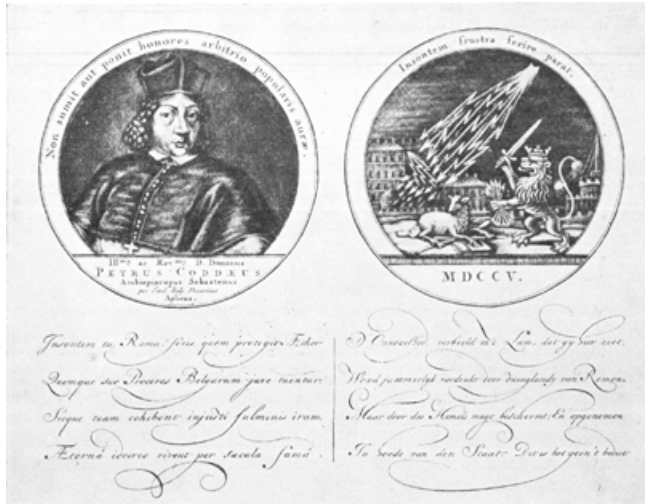 Non sumit aut ponit honores arbitrio popularis auræ.
Ill.mus ac Rev.mus D. Dominus
PETRUS CODDÆUS
Archiepiscopus Sebastenus
per Fœd. Belg. Vicarius
Aplicus.
Insontem frustra ferire parat.
MDCCV.
Insontem tu, Roma, feris, quem protegit Æther
Quemque suo Proceres Belgarum jure tuentur:
Sicque tuam cohibent injusti fulminis iram,
Æternâ idcirco vivent per sæcula famâ.
D'Onnoselheÿd, verbeeld in 't Lam, dat gy hier ziet,
Word jammerlyk verdrukt door dwinglandy van Romen,
Maar door des Hemels magt beschermt; En opgenomen
In hoede van den Staat: Dit is het geen 't bediet.